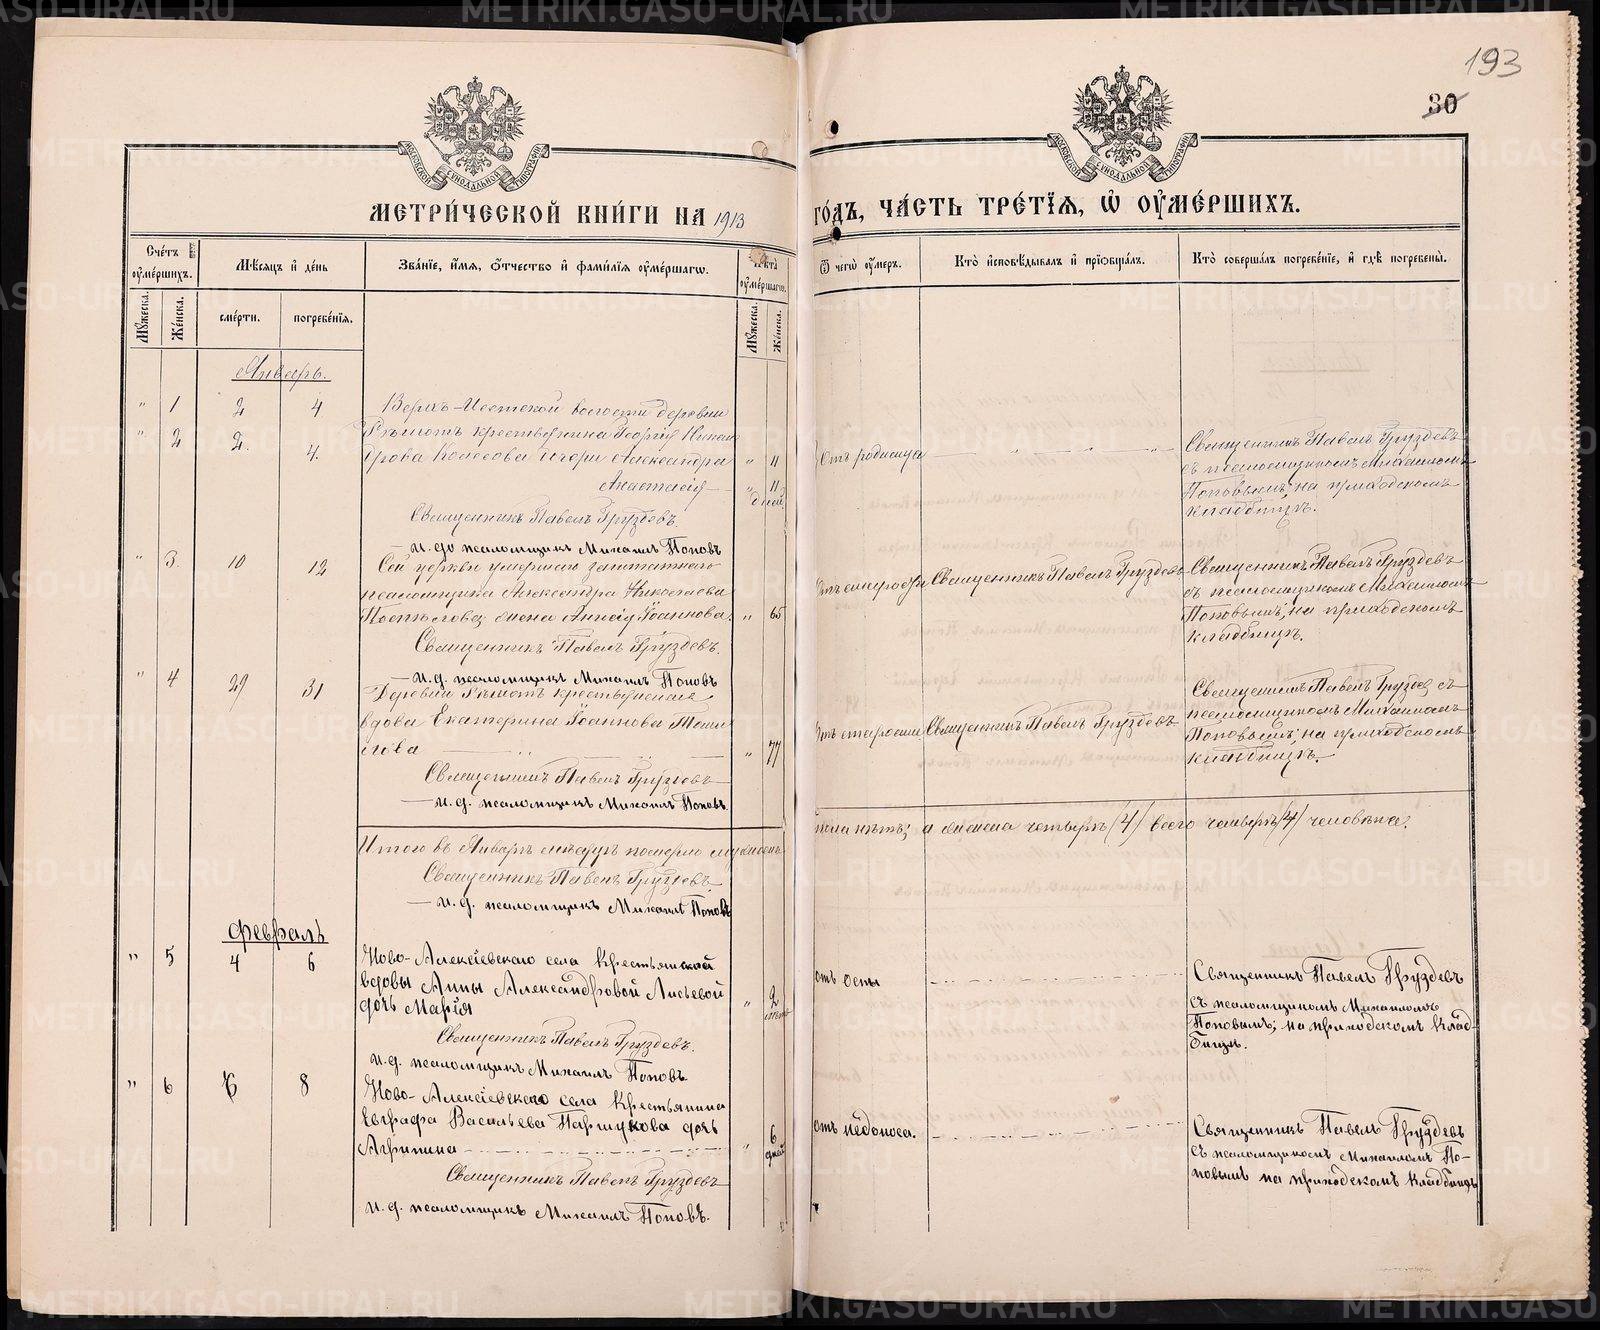 193
30
МОСКОВСКОЙ СѴНОДАЛЬНОЙ ТИПОГРАФІИ
МОСКОВСКОЙ СѴНОДАЛЬНОЙ ТИПОГРАФІИ
МЕТРИ́ЧЕСКОЙ КНИ́ГИ НА 1913
ГО́ДЪ, ЧА́СТЬ ТРЕ́ТІЯ, Ѡ ОУ҆МЕ́РШИХЪ.
Счетъ оумершихъ.
Мѣсяцъ и день
Званіе, имя, отчество и фамилія оумершагѡ.
Лѣта оумершагѡ.
Ѿ чегѡ оумеръ.
Кто исповѣдывалъ и пріобщалъ.
Кто совершалъ погребеніе, и гдѣ погребены.
Мужеска.
Женска.
смерти.
погребенія.
Мужеска.
Женска.
Январь.
" 1 2 4
волости деревни
" 2 2. 4.
крестьянина Георгія
дочери Александра " 11
Анастасія " 11
дней
Священникъ Павелъ Груздевъ.
и. до псаломщикъ Михаилъ Поповъ
Священникъ Павелъ Груздевъ
съ псаломщикомъ Михаиломъ
Поповымъ; на приходскомъ
кладбищѣ.
" 3. 10 12
Сей церкви умершаго заштатнаго
псаломщика Александра Николаева
жена Іоаннова. " 65
Священникъ Павелъ Груздевъ.
и. д. псаломщикъ Михаилъ Поповъ
Священникъ Павелъ Груздевъ
Священникъ Павелъ Груздевъ
съ псаломщикомъ Михаиломъ
Поповымъ; на приходскомъ
кладбищѣ.
" 4 29 31
Деревни крестьянская
вдова Екатерина Іоаннова
" 77
Священникъ Павелъ Груздевъ
и. д. псаломщикъ Михаилъ Поповъ.
отъ старости
Священникъ Павелъ Груздевъ
Священникъ Павелъ Груздевъ съ
псаломщикомъ Михаиломъ
Поповымъ; на приходскомъ
кладбищѣ.
Итого въ Январѣ мѣсяцѣ померло мужескаго
пола нѣтъ; а женска четыре /4/ всего четыре /4/ человѣка.
Священникъ Павелъ Груздевъ.
и. д. псаломщикъ Михаилъ Поповъ
Февраль
" 5 4 6
Ново-Алексіевскаго села крестьянской
вдовы Анны Александровой Лисьевой
дочь Марія " 2
лѣтъ
Священникъ Павелъ Груздевъ.
и. д. псаломщикъ Михаилъ Поповъ
отъ оспы
Священникъ Павелъ Груздевъ
съ псаломщикомъ Михаиломъ
Поповымъ; на приходскомъ клад-
бищѣ.
" 6 6 8
Ново-Алексіевскаго села крестьянина
Евграфа Васильева Паршукова дочь
Агрипина " 6
дней
Священникъ Павелъ Груздевъ
и. д. псаломщикъ Михаилъ Поповъ.
отъ недоноса.
Священникъ Павелъ Груздевъ
съ псаломщикомъ Михаиломъ По-
повымъ на приходскомъ кладбищѣ
METRIKI.GASO-URAL.RU